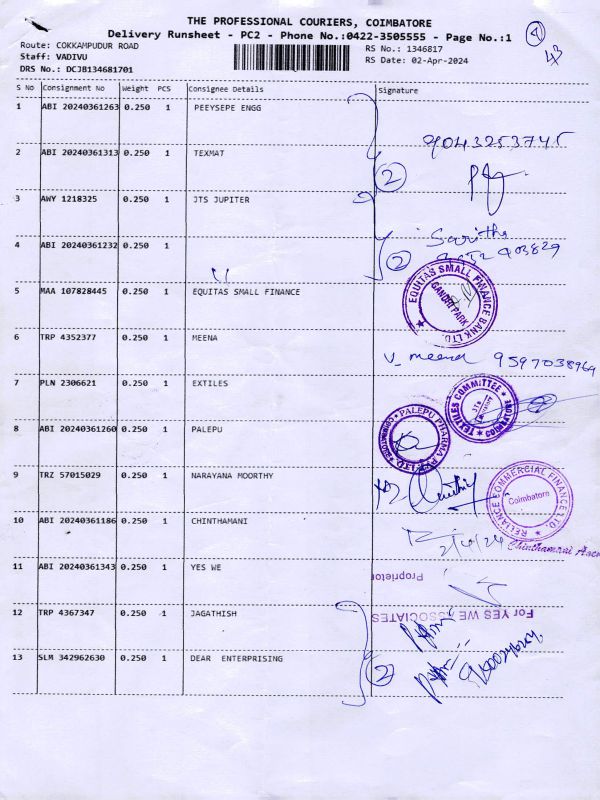 THE PROFESSIONAL COURIERS, COIMBATORE
Delivery Runsheet - PC2 - Phone No.:0422-3505555 - Page No.:1
Route: COKKAMPUDUR ROAD
RS No.: 1346817
Staff: VADIVU
RS Date: 02-Apr-2024
DRS No.: DCJB134681701
43
S No Consignment No Weight PCS Consignee Details Signature
1 ABI 20240361263 0.250 1 PEEYSEPE ENGG
9043253745
2 ABI 20240361313 0.250 1 TEXMAT
2
3 AWY 1218325 0.250 1 JTS JUPITER
Saritha
4 ABI 20240361232 0.250 1
2
5 MAA 107828445 0.250 1 EQUITAS SMALL FINANCE
EQUITAS SMALL FINANCE BANK LTD.
GANDHI PARK
6 TRP 4352377 0.250 1 MEENA
V_ meena 9597038964
7 PLN 2306621 0.250 1 EXTILES
TEXTILES COMMITTEE
8 ABI 20240361260 0.250 1 PALEPU
PALEPU PHARMA
9 TRZ 57015029 0.250 1 NARAYANA MOORTHY
RELIANCE COMMERCIAL FINANCE LTD.
Coimbatore
10 ABI 20240361186 0.250 1 CHINTHAMANI
2/4/24
Chinthamani
11 ABI 20240361343 0.250 1 YES WE
Proprietor
12 TRP 4367347 0.250 1 JAGATHISH
For YES WE ASSOCIATES
13 SLM 342962630 0.250 1 DEAR ENTERPRISING
2